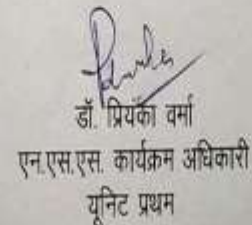 डॉ. प्रियंका वर्मा
एन.एस.एस. कार्यक्रम अधिकारी
यूनिट प्रथम